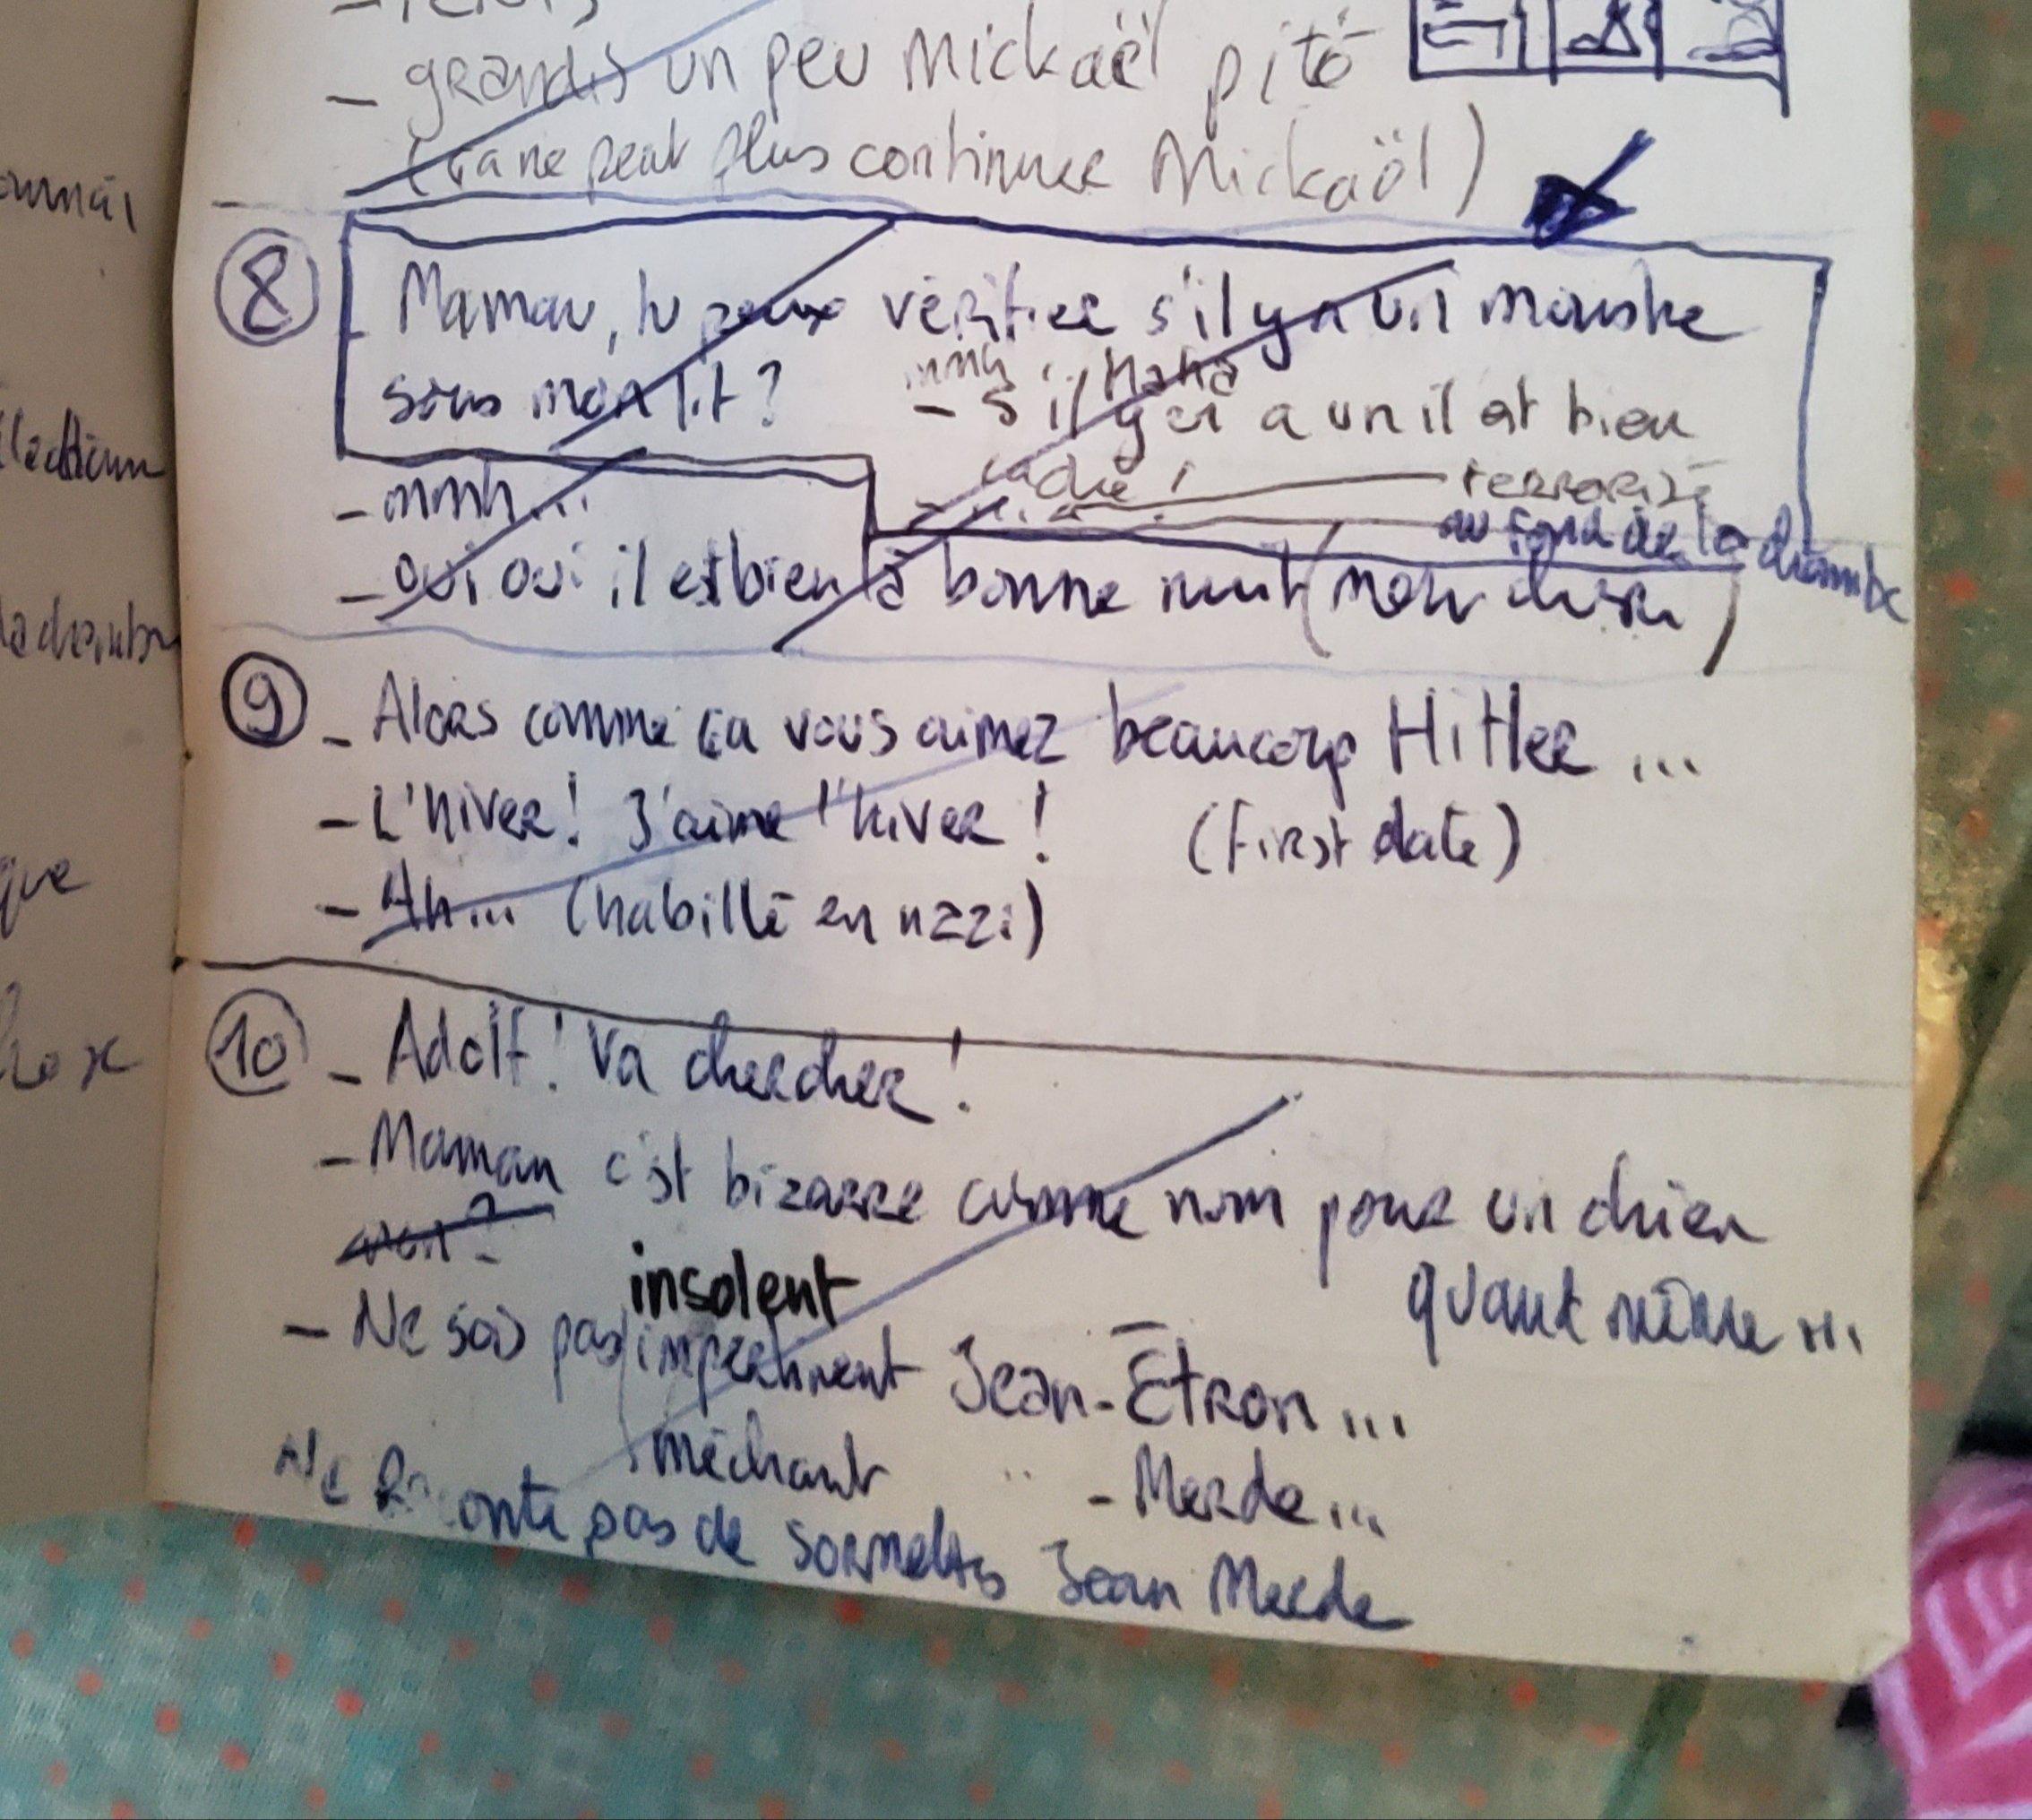 - grandis un peu Mickaël pitö
(ça ne peut plus continuer Mickaöl)
8
- Maman, tu peux vérifier s'il y a un monstre
sous mon lit ?
mmh
- S'il y en a un il est bien
caché !
terrorisé
au fond de la chambre
- mmh...
- oui oui il est bien là bonne nuit (mon chéri)
9
- Alors comme ça vous aimez beaucoup Hitler ...
- L'hiver ! J'aime l'hiver ! (first date)
- Ah... (habillé en nazi)
10
- Adolf ! Va chercher !
- Maman c'est bizarre comme nom pour un chien
non ?
quant même ...
insolent
- Ne sois pas impertinent Jean-Étron ...
méchant " - Merde ...
Ne Raconte pas de sornettes Jean Merde